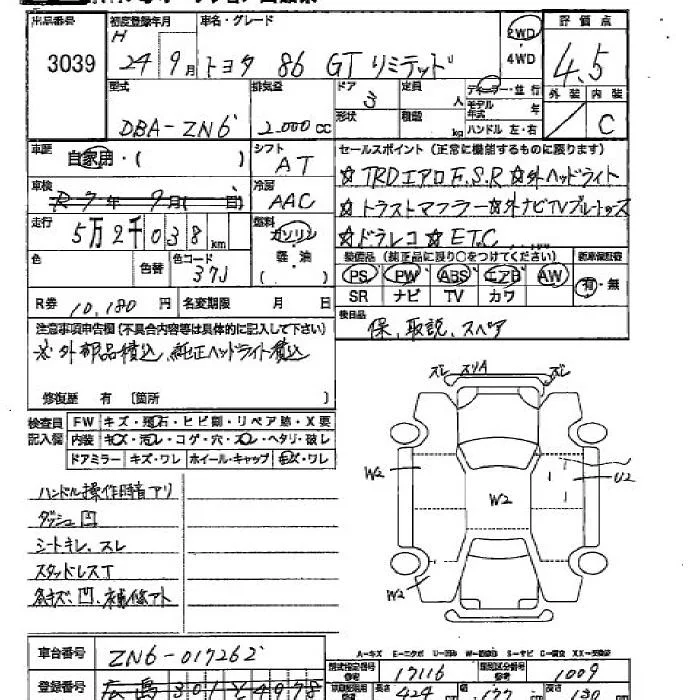 出品番号
3039
初度登録年月
H
24 9月
車名・グレード
トヨタ 86 GT リミテッド
2WD
4WD
評価点
4.5
外装 内装
C
型式
DBA-ZN6
排気量
2.000 cc
ドア
3
形状
定員 人
積載 kg
ディーラー・並行
モデル年式 年
ハンドル 左・右
車歴
自家用・( )
シフト
AT
セールスポイント(正常に機能するものに限ります)
☆TRDエアロF.S.R ☆外ヘッドライト
☆トラストマフラー ☆外ナビTVブルートゥス
☆ドラレコ ☆ETC
車検
R7年 9月( 日)
冷房
AAC
走行
5万2千038km
燃料
ガソリン
軽・油
( )
色
色替
色コード
37J
装備品(純正品に限り○をつけてください)
PS PW ABS エアB AW
SR ナビ TV カワ
新車保証書
有・無
R券 10,180円
名変期限 月 日
後日品
保、取説、スペア
注意事項申告欄(不具合内容等は具体的に記入して下さい)
※外部品積込、純正ヘッドライト積込
修復歴 有 〔箇所 〕
検査員記入欄
FW キズ・飛石・ヒビ割・リペア跡・X要
内装 キズ・汚レ・コゲ・穴・スレ・ヘタリ・破レ
ドアミラー キズ・ワレ ホイール・キャップ キズ・ワレ
ハンドル操作時音アリ
ダッシュ凹
シートキレ、スレ
スタッドレスT
各キズ、凹、補修アト
ズレ スリA ズレ
W2
W2
U2
W2
A=キズ E=エクボ U=凹 W=波 S=サビ C=腐食 XX=交換
車台番号
ZN6-017262
型式指定番号
17116
類別区分番号
1009
登録番号
広島 301 そ 4978
長さ 424 cm
177
高さ 130